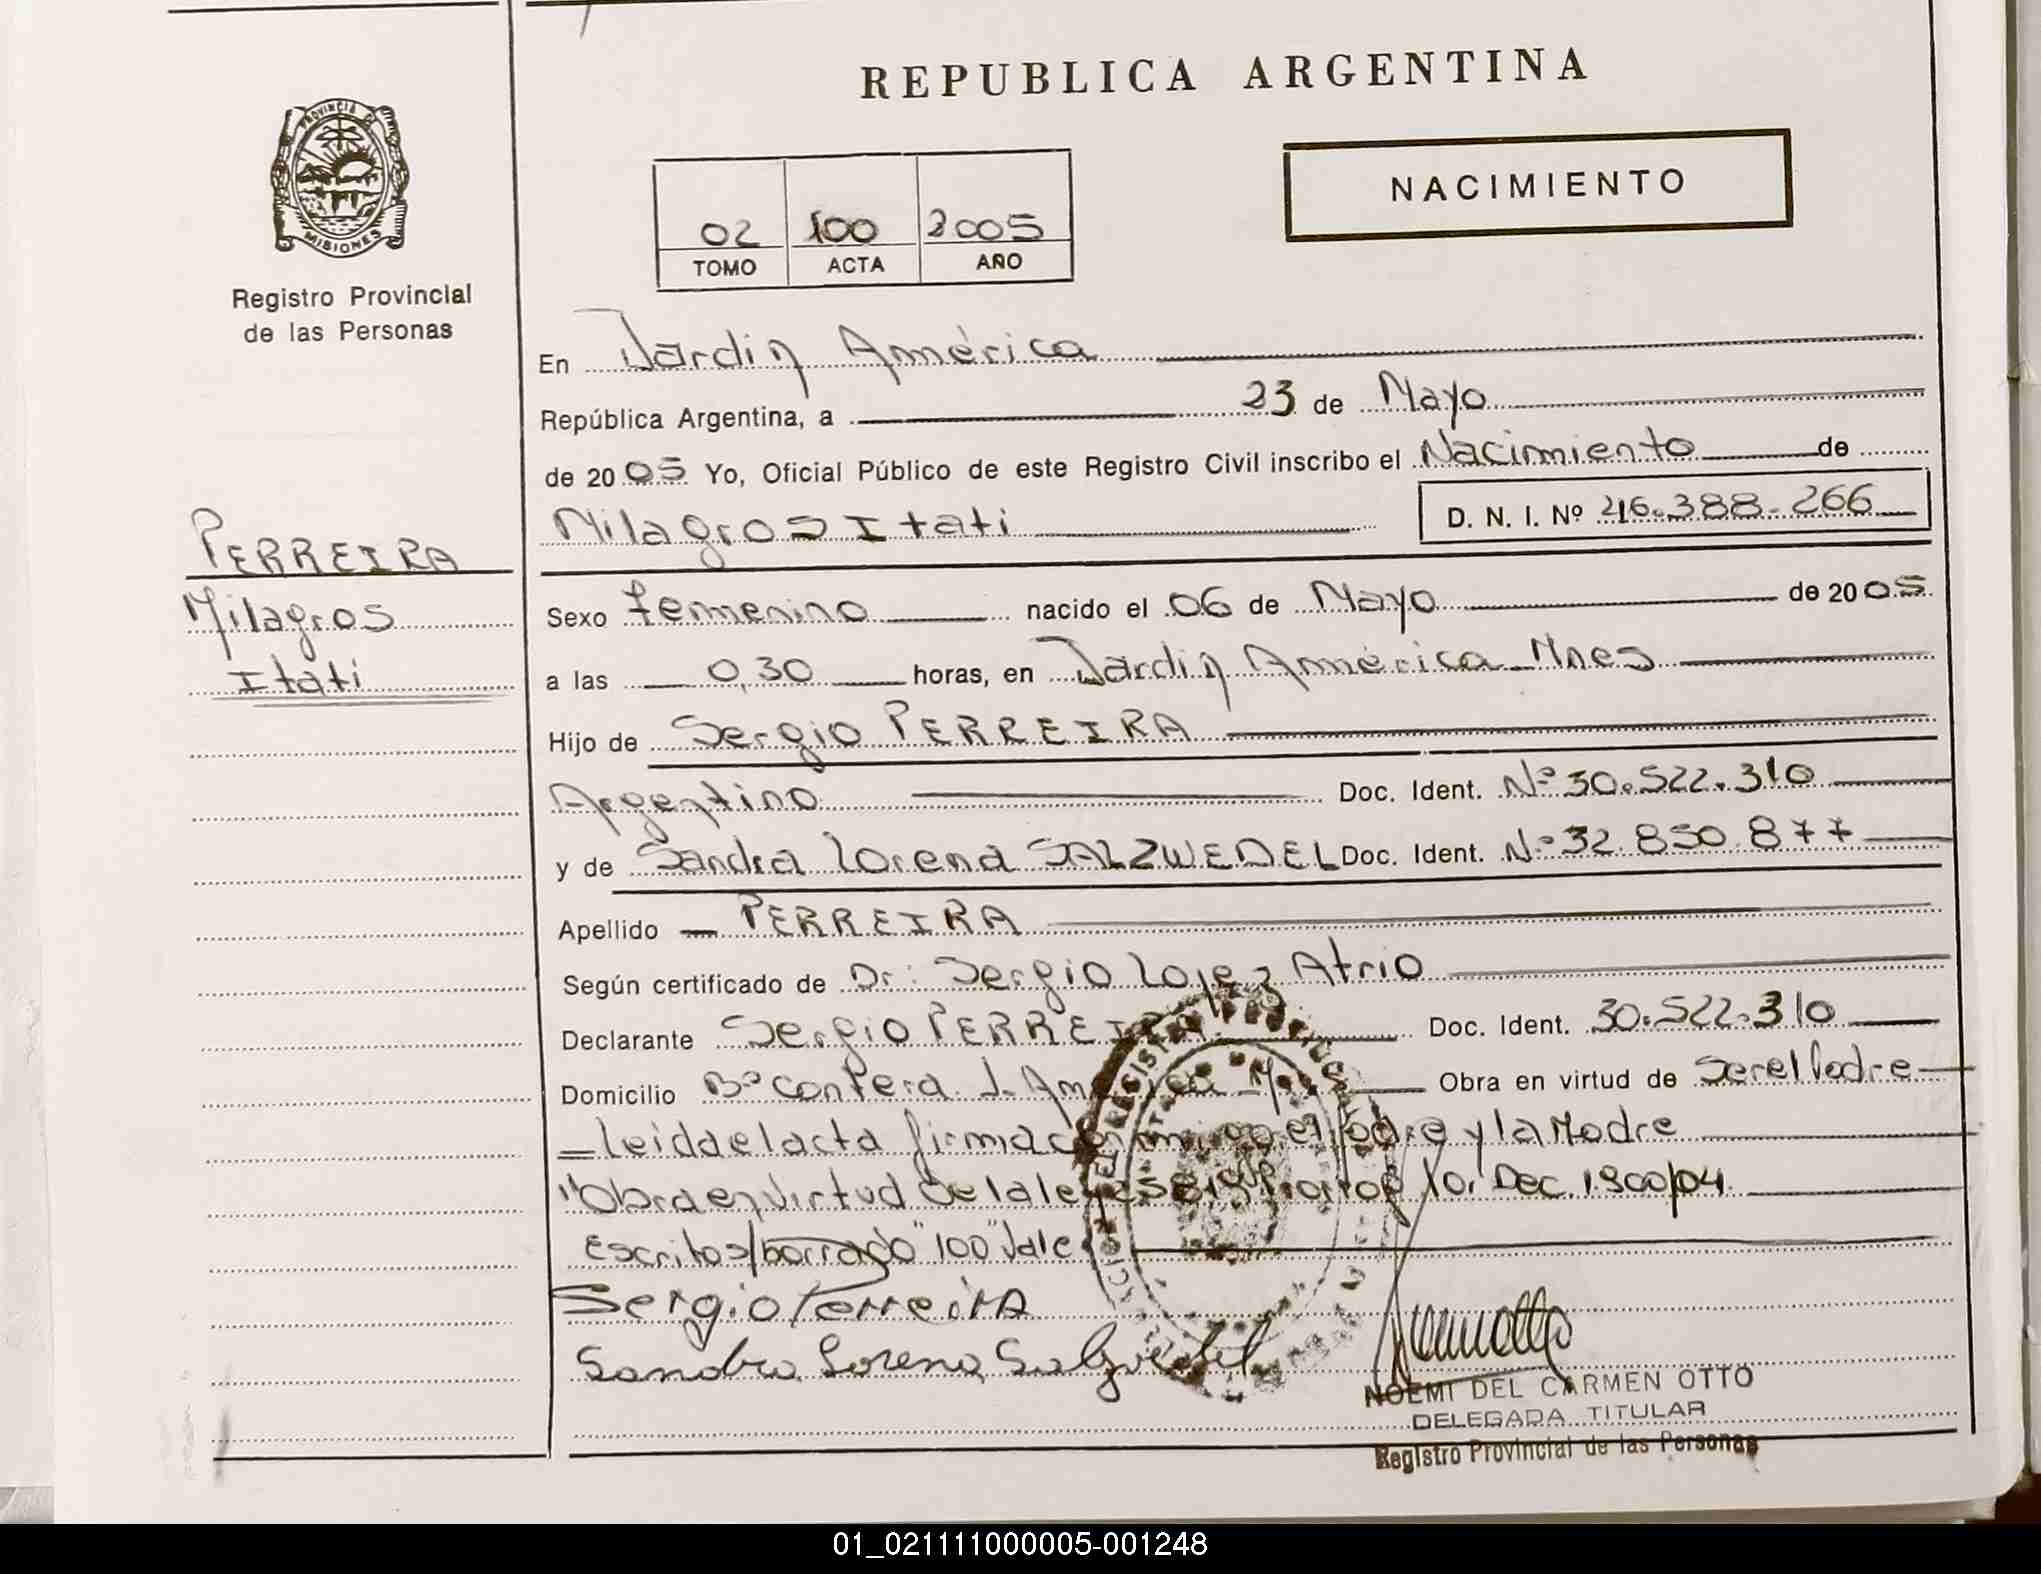 REPUBLICA ARGENTINA
PROVINCIA DE MISIONES
Registro Provincial
de las Personas
NACIMIENTO
02 100 2005
TOMO ACTA AÑO
En Jardin América
República Argentina, a 23 de Mayo
de 2005 Yo, Oficial Público de este Registro Civil inscribo el Nacimiento de
Milagros Itati D. N. I. Nº 46.388.266
PERREIRA
Milagros
Itati
Sexo femenino nacido el 06 de Mayo de 2005
a las 0,30 horas, en Jardin América Mnes
Hijo de Sergio PERREIRA
Argentino Doc. Ident. Nº 30.522.310
y de Sandra Lorena SALZWEDEL Doc. Ident. Nº 32.850.877
Apellido PERREIRA
Según certificado de Dr: Sergio Lopez Atrio
Declarante Sergio PERREIRA Doc. Ident. 30.522.310
Domicilio Bº Contera J. América Mnes Obra en virtud de Ser el Padre
Leida el acta firman conmigo el Padre y la Madre
"Obra en virtud de la ley Dec. 1900/04
Escritos/borrado "100" Vale
Sergio Perreira
Sandra Lorena Salzwedel
NOEMI DEL CARMEN OTTO
DELEGADA TITULAR
Registro Provincial de las Personas
01_021111000005-001248